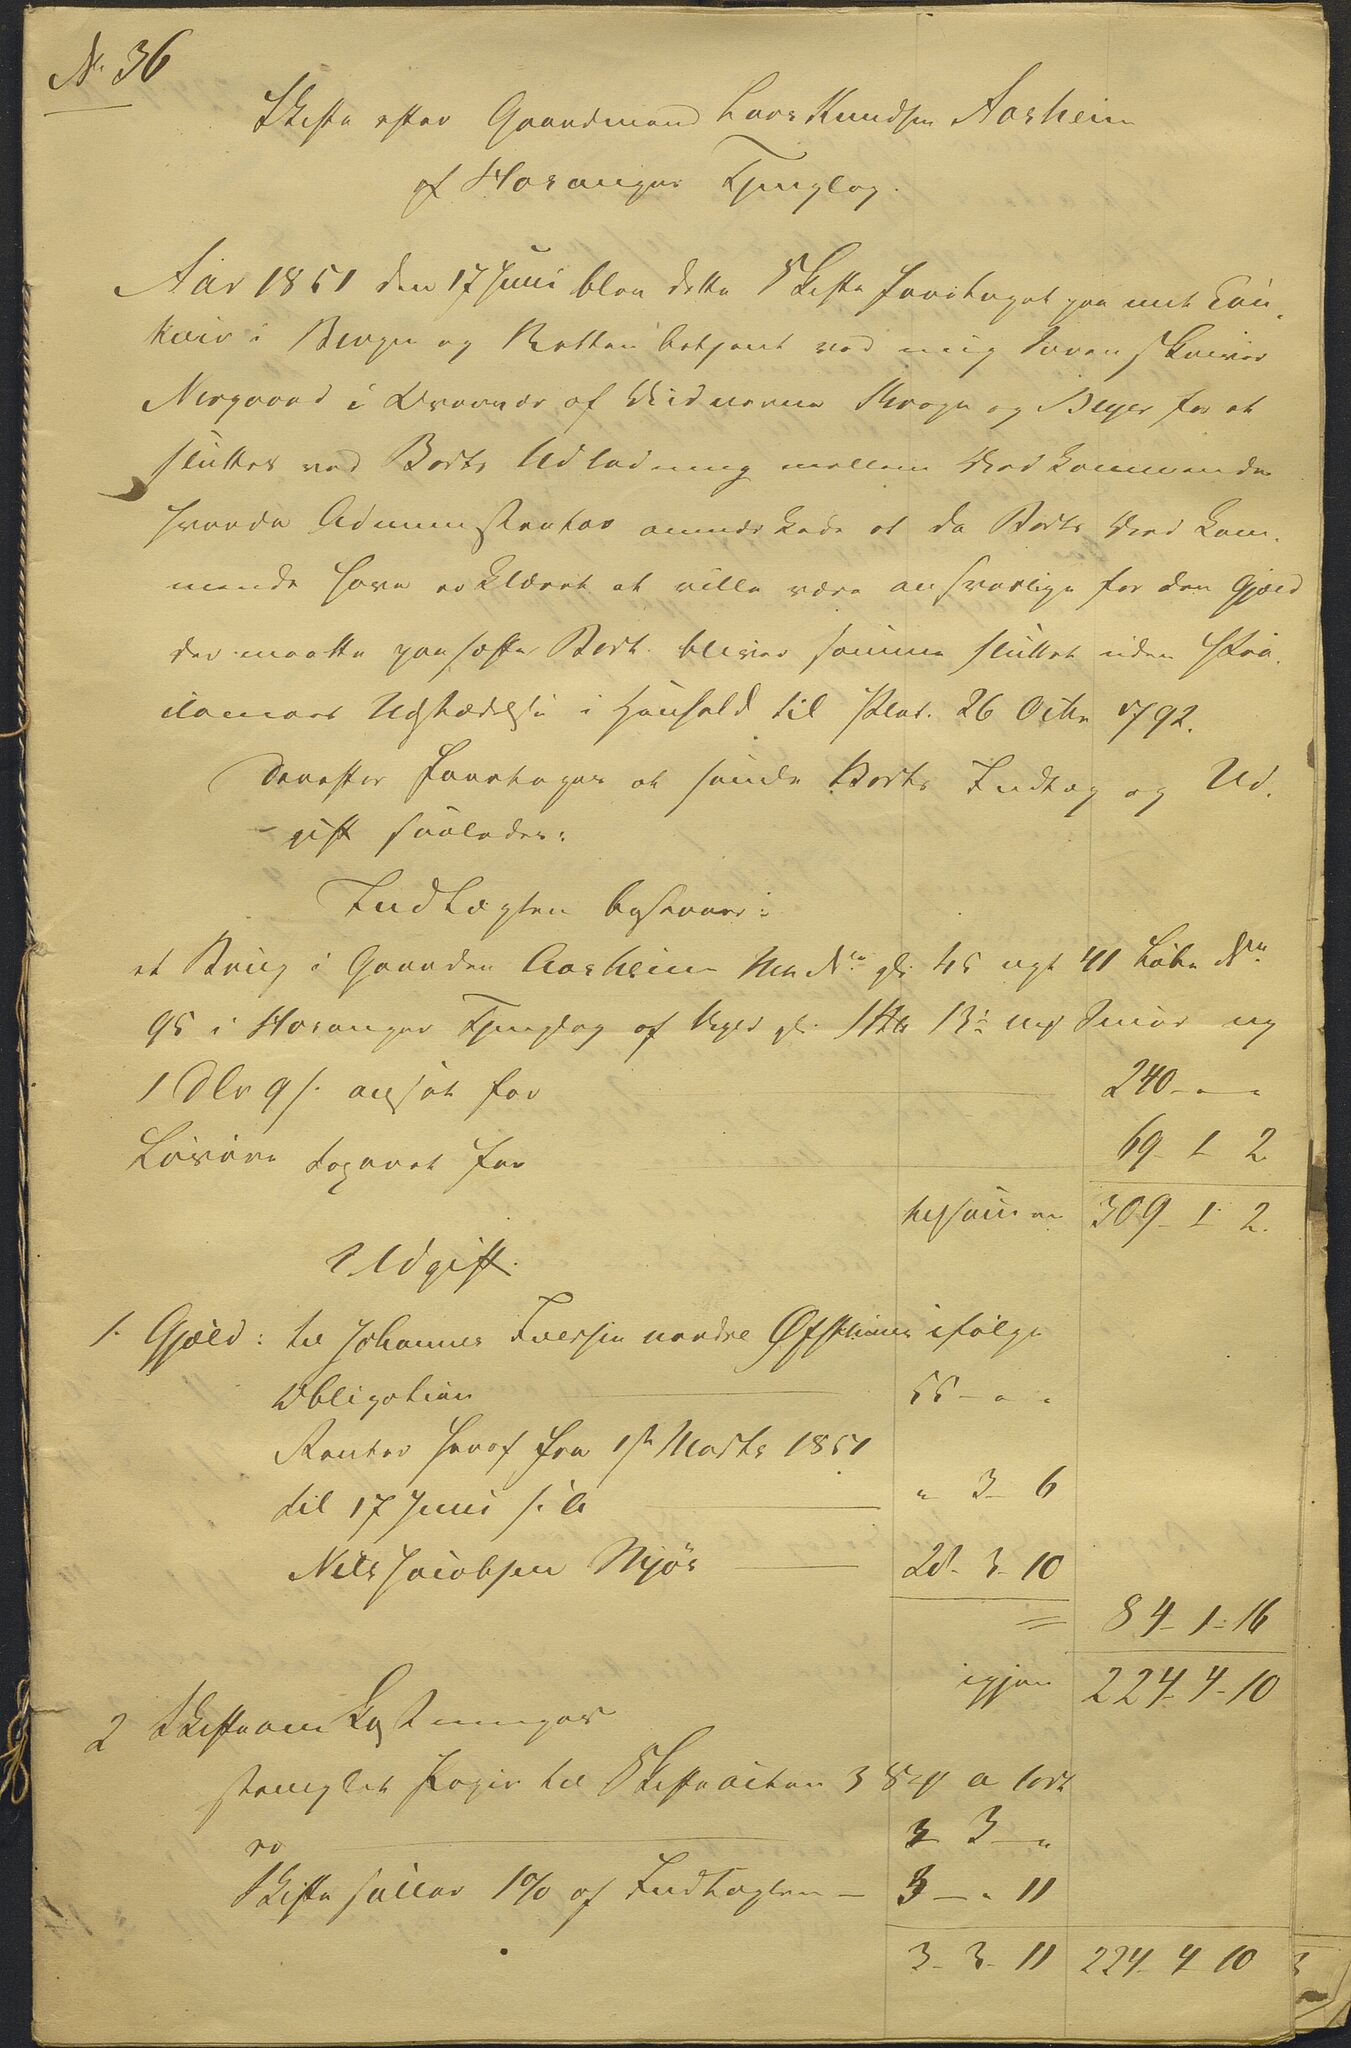 No 36
Skifte efter Gaardmand Lars Knudsen Aasheim
af Hosanger Thinglag.
Aar 1851 den 17 Juni blev dette Skifte foretaget paa mit Con-
toir i Bergen og Retten betjent ved mig Sorenskriver
Nergaard i Overvær af Vidnerne Krage og Beyer for at
sluttes ved Boets Udladning mellem Vedkommende
hvorda Administrator anmærkede at da Boets Vedkom-
mende have erklæret at ville være ansvarlige for den Gjæld
der maatte paahefte Boet bliver samme sluttet uden Pro-
clamas Udstædelse i Henhold til Plac. 26 Octbr 1792.
Derefter foretages at samle Boets Indtægt og Ud-
gift saaledes:
Indtægten bestaaer:
et Brug i Gaarden Aasheim Mt No gl. 45 nyt 41 Løbe No
95 i Hosanger Thinglag af Skyld gl. 13½ mk Smør ny
1 Dlr 9 s. ansat for 240 - " - "
Løsøre taxeret for 69 - 1 - 2
tilsammen 309 - 1 - 2.
Udgift.
1. Gjæld: til Johannes Iversen nordre Øfsthuus ifølge
Obligation 55 - " - "
Renter heraf fra 1ste Marts 1851
til 17 Juni s. A. " 3 - 6
Nils Jacobsen Mjøs 28 - 3 - 10
= 84 - 1 - 16
igjen 224 - 4 - 10
2 Skifteomkostninger
stemplet Papir til Skifteacten 3 a
er 3 - "
Skifte sallar 1% af Indtægten - 3 - " 11
3 - 3 - 11 224 - 4 10